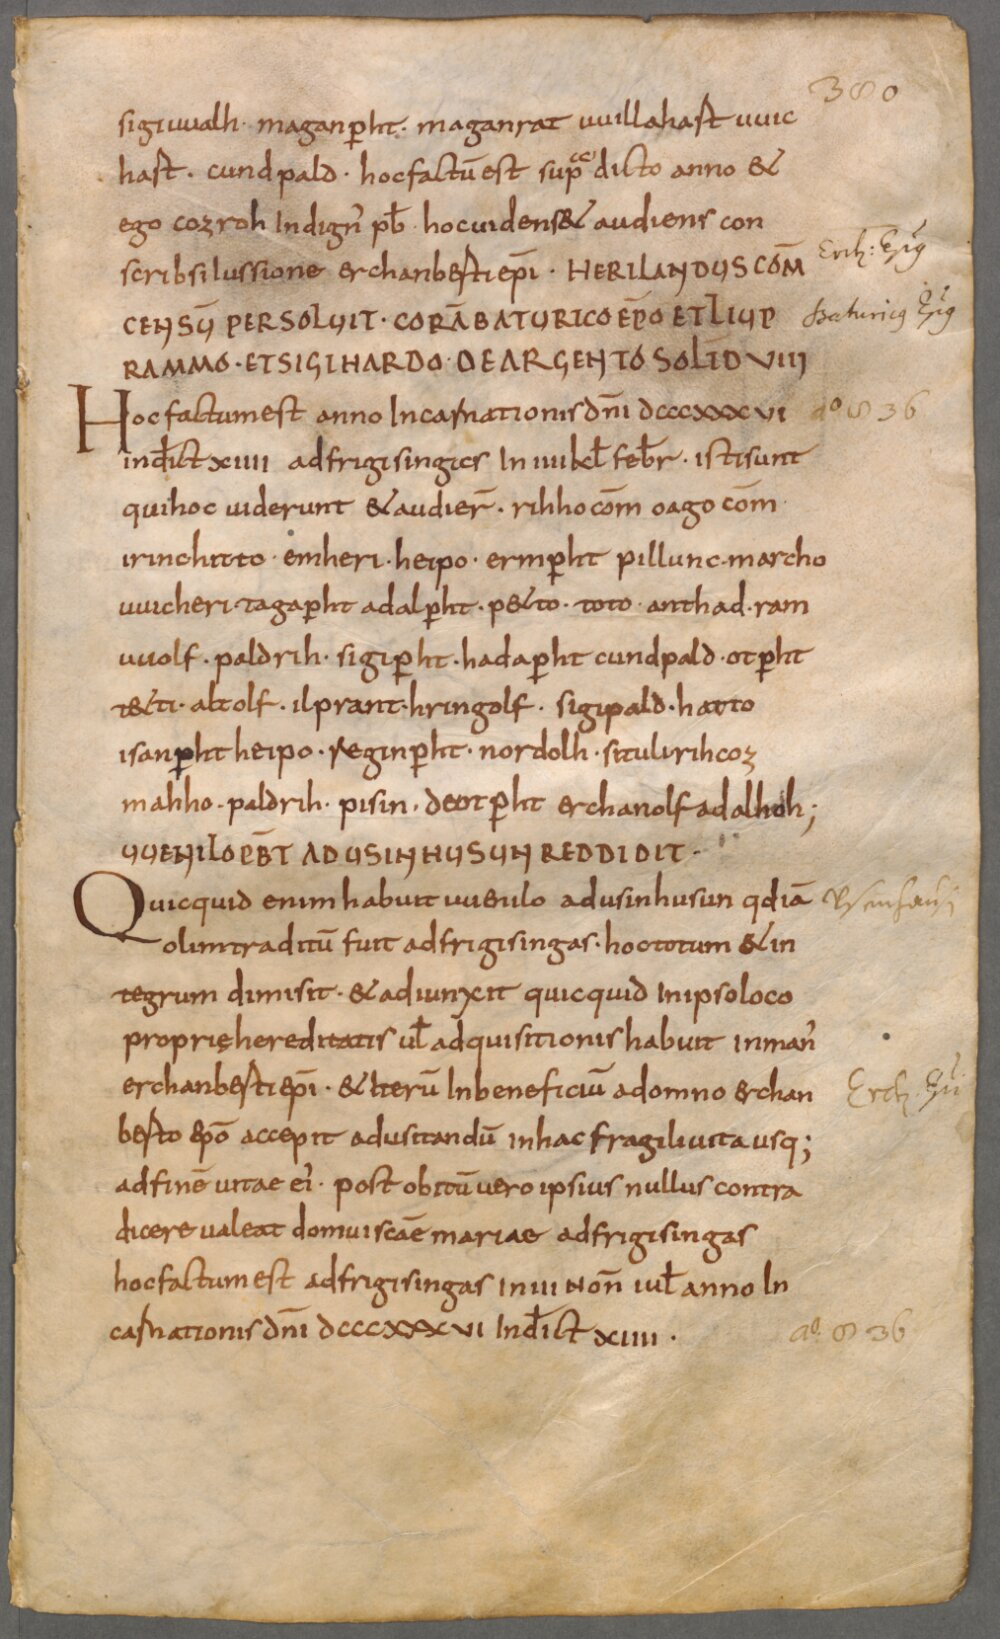 380
sigiuualh · maganp̄ht · maganrat uuillahast uuic
hast · cundpald · hoc factū est sup̄dicto anno &
ego cozroh Indign̄ pb̄ · hoc uidens & audiens con
scribsi Iussione erchanberti ep̄i · HERILANDUS COM̄
Erch: Ep̄g
CENSŪ PERSOLUIT · CORĀ BATURICO EP̄O ET LIUP
Baturicq Ep̄g
RAMMO · ET SIGIHARDO · DE ARGENTO SOLID VIII
Hoc factum est anno Incarnationis dn̄i dcccxxxvi
aº 836
indict̄ xiiii ad frigisingas In iiii kl̄ feb̄r · isti sunt
qui hoc uiderunt & audier̄ · rihho com̄ oago com̄
irinchitto · emheri · heipo · ermp̄ht pillunc · marcho
uuicheri · tagap̄ht adalp̄ht · p&to · toto · anthad · ram
uuolf · paldrih · sigip̄ht · hadap̄ht cundpald · otp̄ht
t&ti · altolf · ilprant · hringolf · sigipald · hatto
isanp̄ht heipo · reginp̄ht · nordolh · situli · rihcoz
mahho · paldrih · pisin · deotp̄ht erchanolf adalhoh;
UUENILO PB̄T AD USINHUSUN REDDIDIT ·
Quicquid enim habuit uuenilo ad usinhusun qdiā
olim traditū fuit ad frigisingas · hoc totum & in
tegrum dimisit · & adiunxit quicquid In ipso loco
proprię hereditatis ul̄ adquisitionis habuit in man̄
erchanberti ep̄i · & iterū In beneficiū a domno erchan
Erch. Ep̄i
berto ep̄o accepit ad usitandū in hac fragili uita usq;
ad finē uitae ei' · post obitū uero ipsius nullus contra
dicere ualeat domui scāe mariae ad frigisingas
hoc factum est ad frigisingas In iii Non̄ iul̄ anno In
carnationis dn̄i dcccxxxvi Indict̄ xiiii ·
aº 836